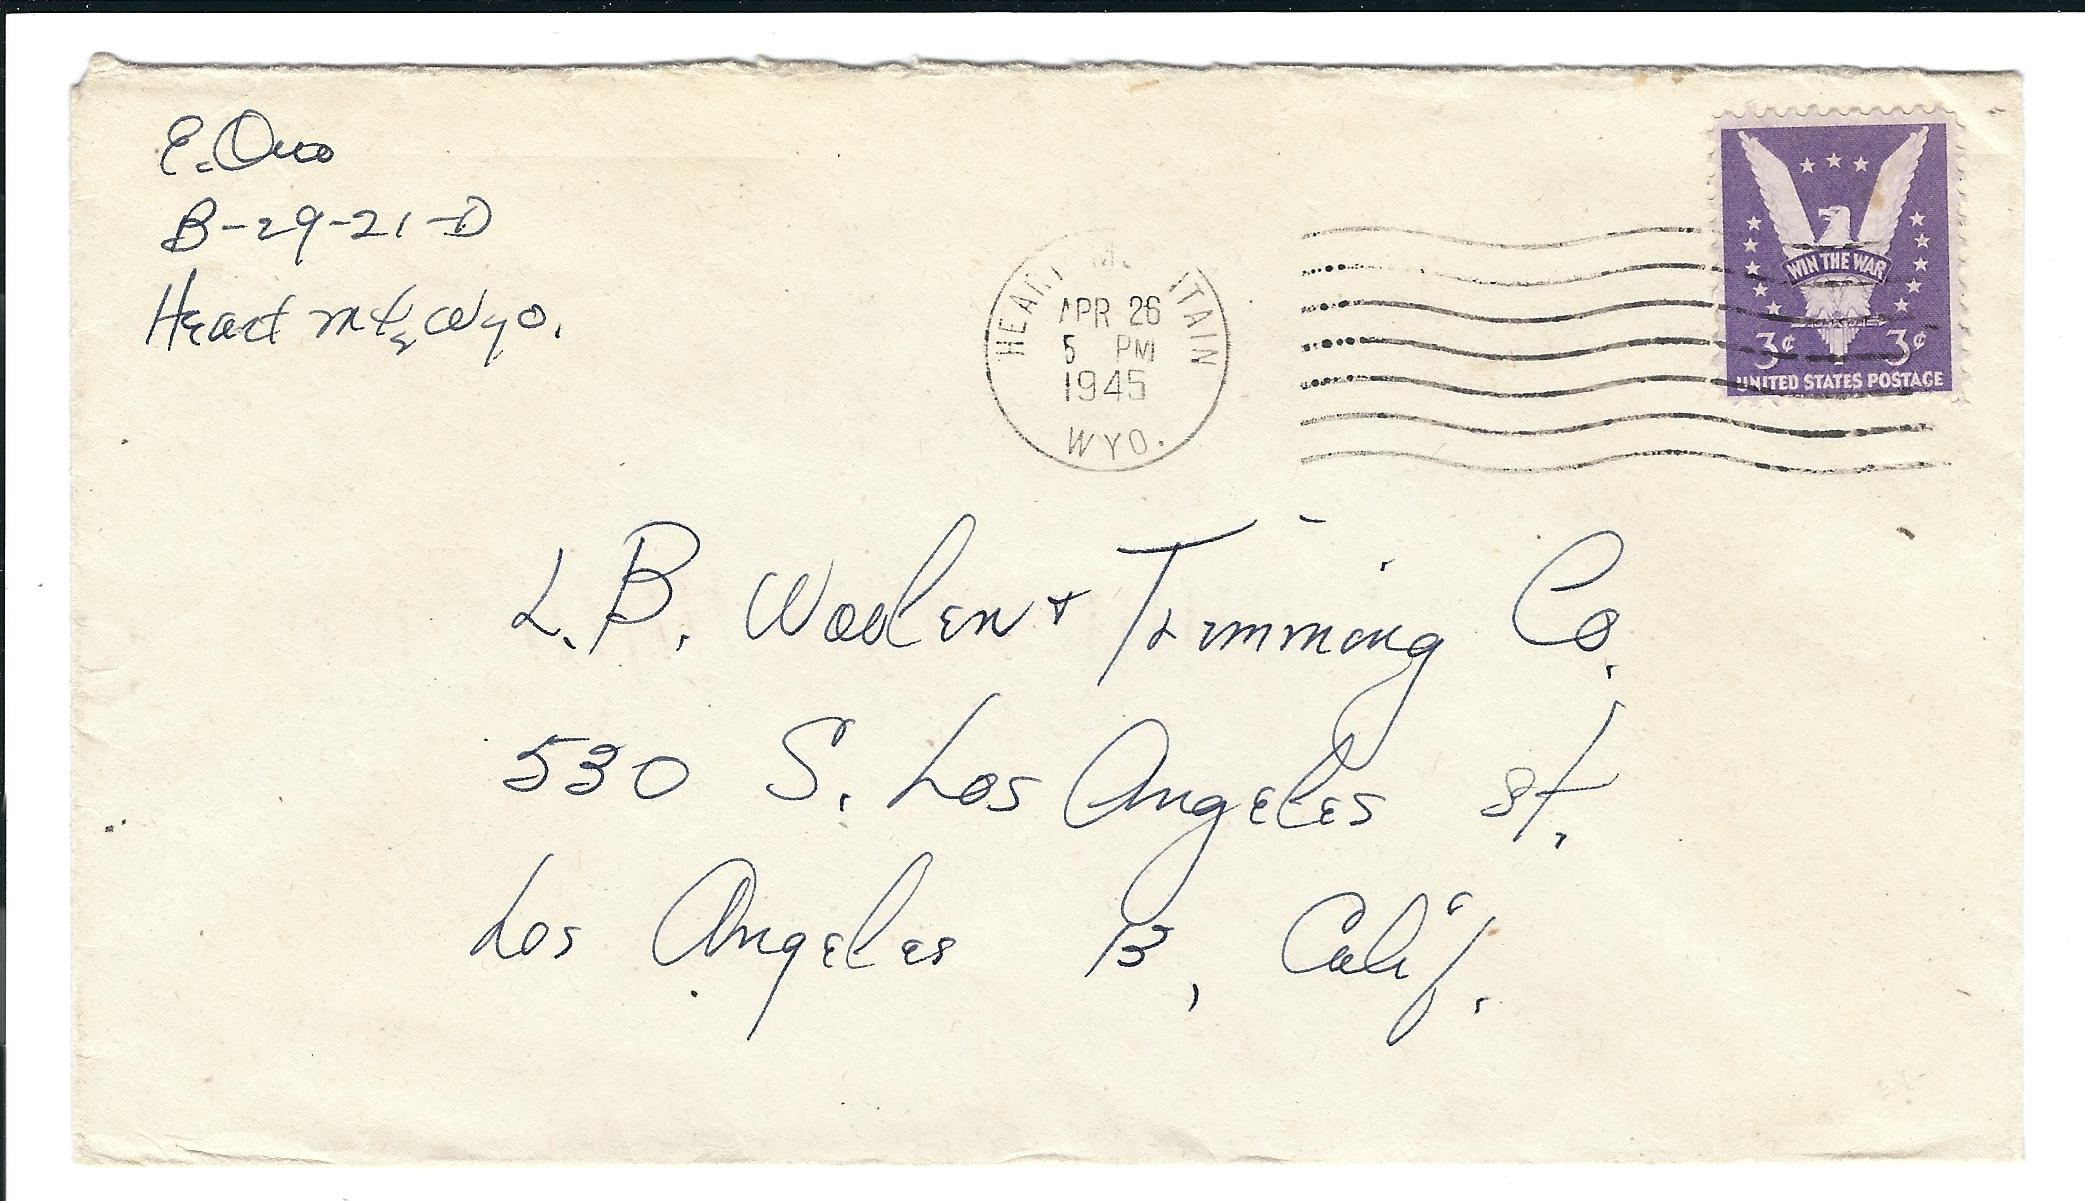 E.
B-29-21-D
Heart Mt, Wyo.
APR 26
5 PM
1945
WYO.
WIN THE WAR
3¢ 3¢
UNITED STATES POSTAGE
L.B. Woolen & Trimming Co.
530 S. Los Angeles St.
Los Angeles 13, Calif.